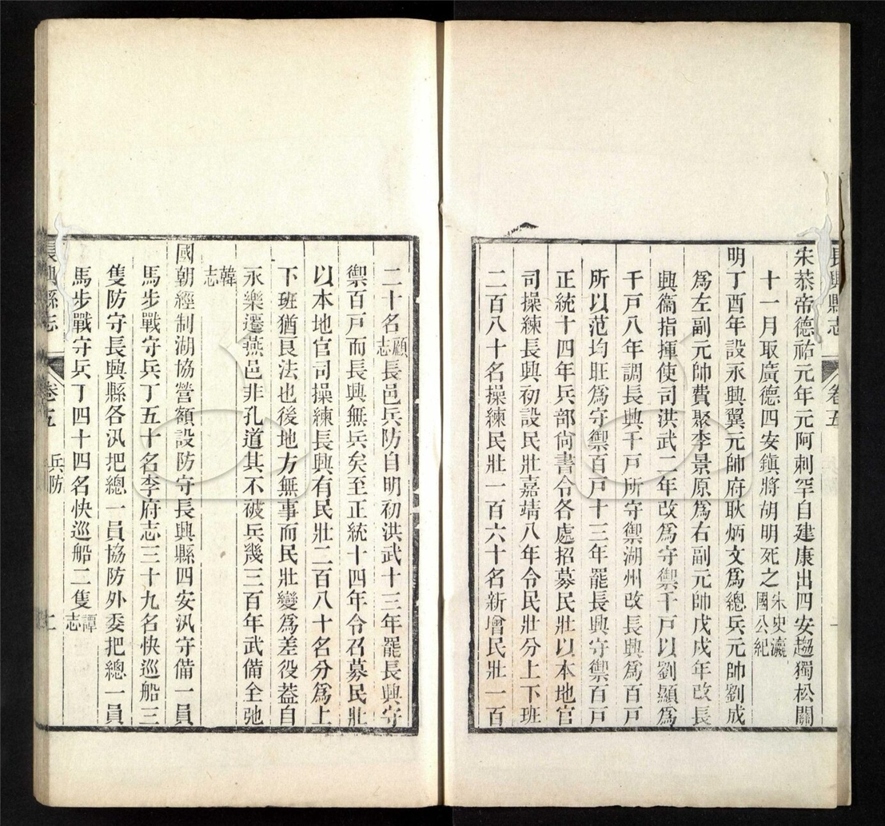 宋恭帝德祐元年元阿剌罕自建康出四安趨獨松關
十一月取廣德四安鎮將胡明死之宋史瀛國公紀
明丁酉年設永興翼元帥府耿炳文爲總兵元帥劉成
爲左副元帥費聚李景原爲右副元帥戊戌年改長
興衞指揮使司洪武二年改爲守禦千戸以劉顯爲
千戸八年調長興千戸所守禦湖州改長興爲百戸
所以范均旺爲守禦百戸十三年罷長興守禦百戸
正統十四年兵部尙書令各處招募民壯以本地官
司操練長興初設民壯嘉靖八年令民壯分上下班
二百八十名操練民壯一百六十名新增民壯一百
長興縣志
卷五
二十名顧志長邑兵防自明初洪武十三年罷長興守
禦百戸而長興無兵矣至正統十四年令召募民壯
以本地官司操練長興有民壯二百八十名分爲上
下班猶艮法也後地方無事而民壯變爲差役葢自
永樂遷燕邑非孔道其不被兵幾三百年武備全弛
韓志
國朝經制湖協營額設防守長興縣四安汛守備一員
馬步戰守兵丁五十名李府志三十九名快巡船三
隻防守長興縣各汛把總一員協防外委把總一員
馬步戰守兵丁四十四名快巡船二隻譚志
長興縣志
卷五
兵防